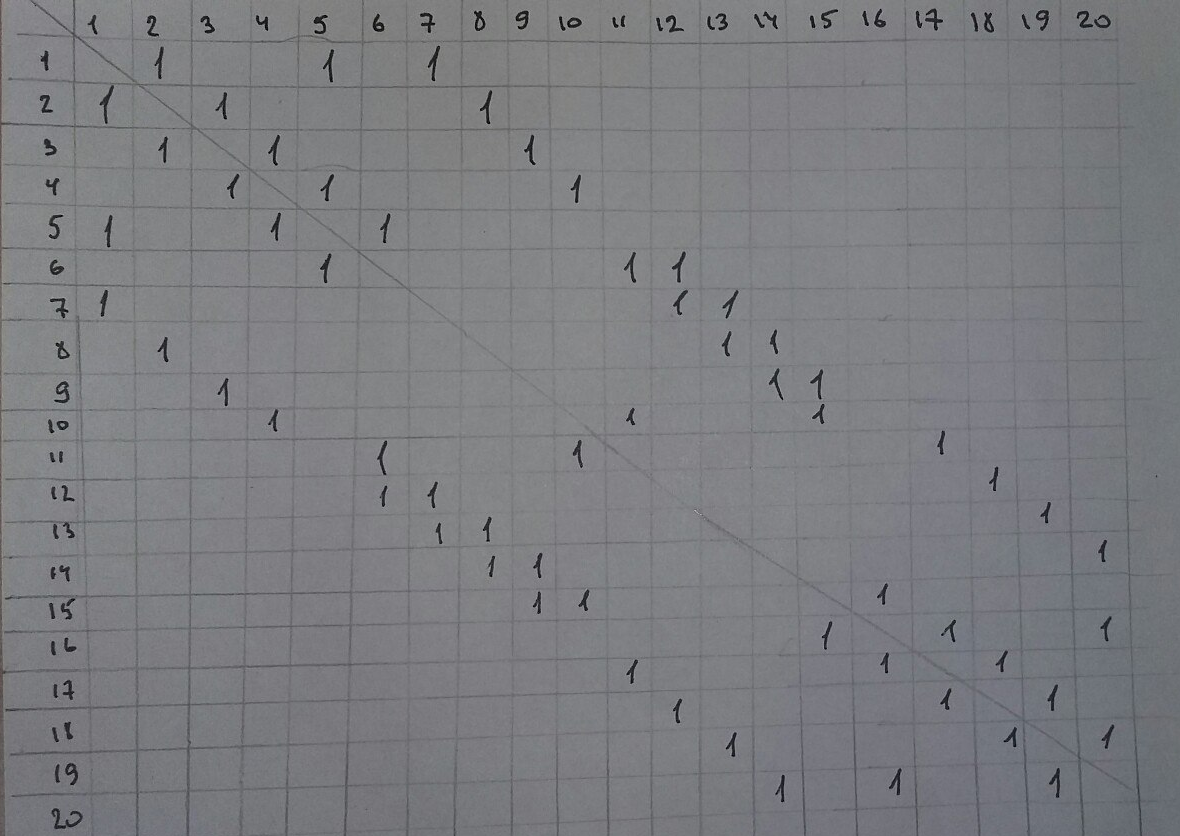 1 2 3 4 5 6 7 8 9 10 11 12 13 14 15 16 17 18 19 20
1 1 1 1
2 1 1 1
3 1 1 1
4 1 1 1
5 1 1 1
6 1 1 1
7 1 1 1
8 1 1 1
9 1 1 1
10 1 1 1
11 1 1 1
12 1 1 1
13 1 1 1
14 1 1 1
15 1 1 1
16 1 1 1
17 1 1 1
18 1 1 1
19 1 1 1
20 1 1 1